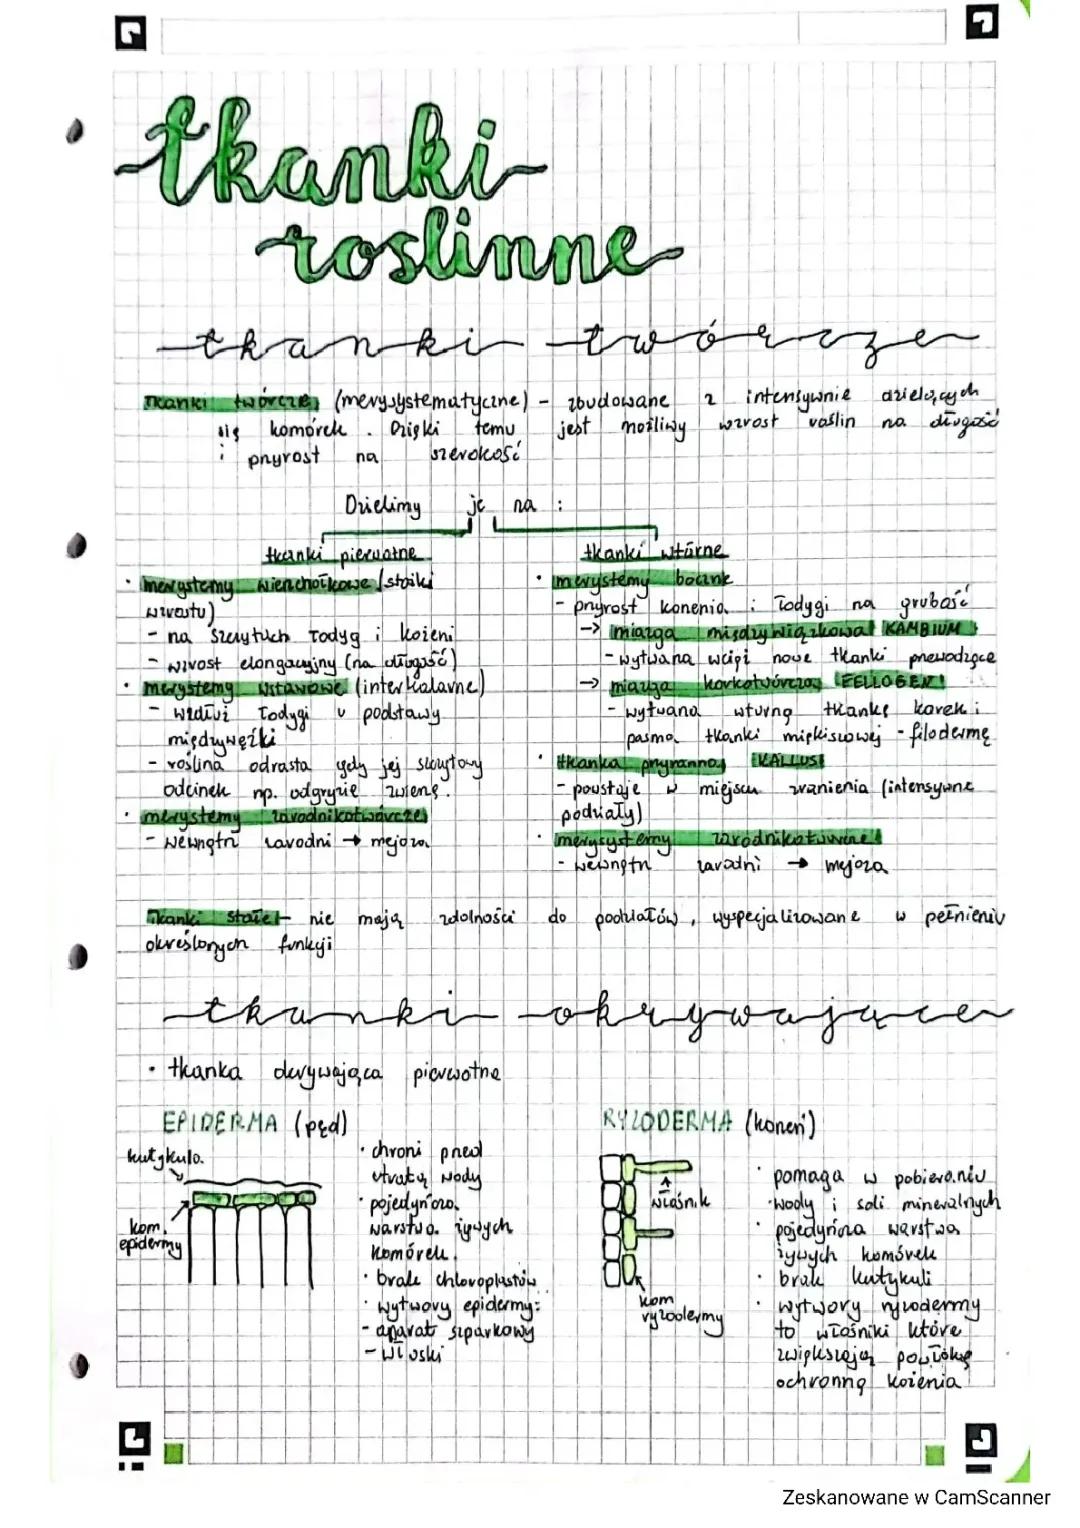 tkanki
roślinne
tkanki twórcze
Tkanki twórcze (merysystematyczne) - zbudowane z intensywnie dzielących
się komórek. Dzięki temu jest możliwy wzrost roślin na długość
i przyrost na szerokość
Dzielimy je na :
tkanki pierwotne
• merystemy wierzchołkowe (stożki
wzrostu)
- na szczytach łodyg i korzeni
- wzrost elongacyjny (na długość)
• merystemy wstawowe (interkalarne)
- wzdłuż łodygi u podstawy
międzywęźli
- roślina odrasta gdy jej szczytowy
odcinek np. odgryzie zwierzę.
• merystemy zarodnikotwórcze
- wewnątrz zarodni → mejoza
tkanki wtórne
• merystemy boczne
- przyrost korzenia i łodygi na grubość
→ miazga międzywiązkowa KAMBIUM
- wytwarza wciąż nowe tkanki przewodzące
→ miazga korkotwórcza FELLOGEN
- wytwarza wtórną tkankę korek i
pasma tkanki miękiszowej - filodermę
• tkanka przyranna KALLUS
- powstaje w miejscu zranienia (intensywne
podziały)
• merysystemy zarodnikotwórcze
- wewnątrz zarodni → mejoza
Tkanki stałe - nie mają zdolności do podziałów, wyspecjalizowane w pełnieniu
określonych funkcji
tkanki okrywające
• tkanka okrywająca pierwotna
EPIDERMA (pęd)
kutykula
kom.
epidermy
• chroni przed
utratą wody
• pojedyncza
warstwa żywych
komórek.
• brak chloroplastów
• wytwory epidermy:
- aparat szparkowy
- włoski
RYZODERMA (korzeń)
włośnik
kom
ryzodermy
• pomaga w pobieraniu
wody i soli mineralnych
• pojedyńcza warstwa
żywych komórek
• brak kutykuli
• wytwory ryzodermy
to włośniki które
zwiększają powłokę
ochronną korzenia
Zeskanowane w CamScanner